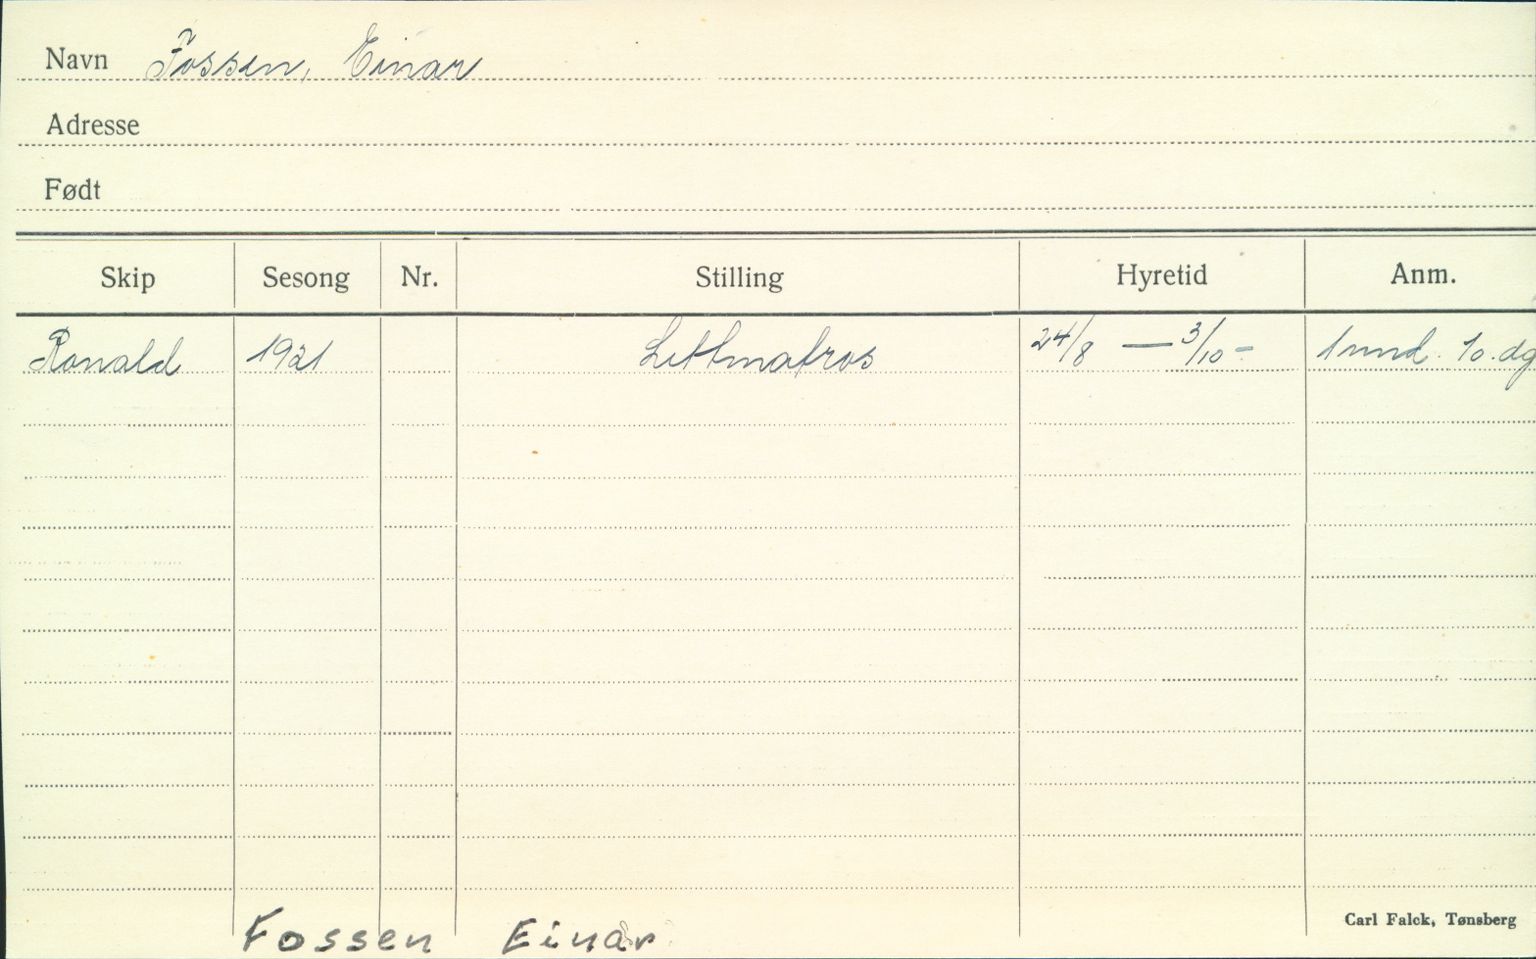 Navn Fossen, Einar
Adresse
Født
Skip Sesong Nr. Stilling Hyretid Anm.
Ronald 1921 Lettmatros 24/8 — 3/10 - 1 mnd. 10. dg
Fossen Einar
Carl Falck, Tønsberg